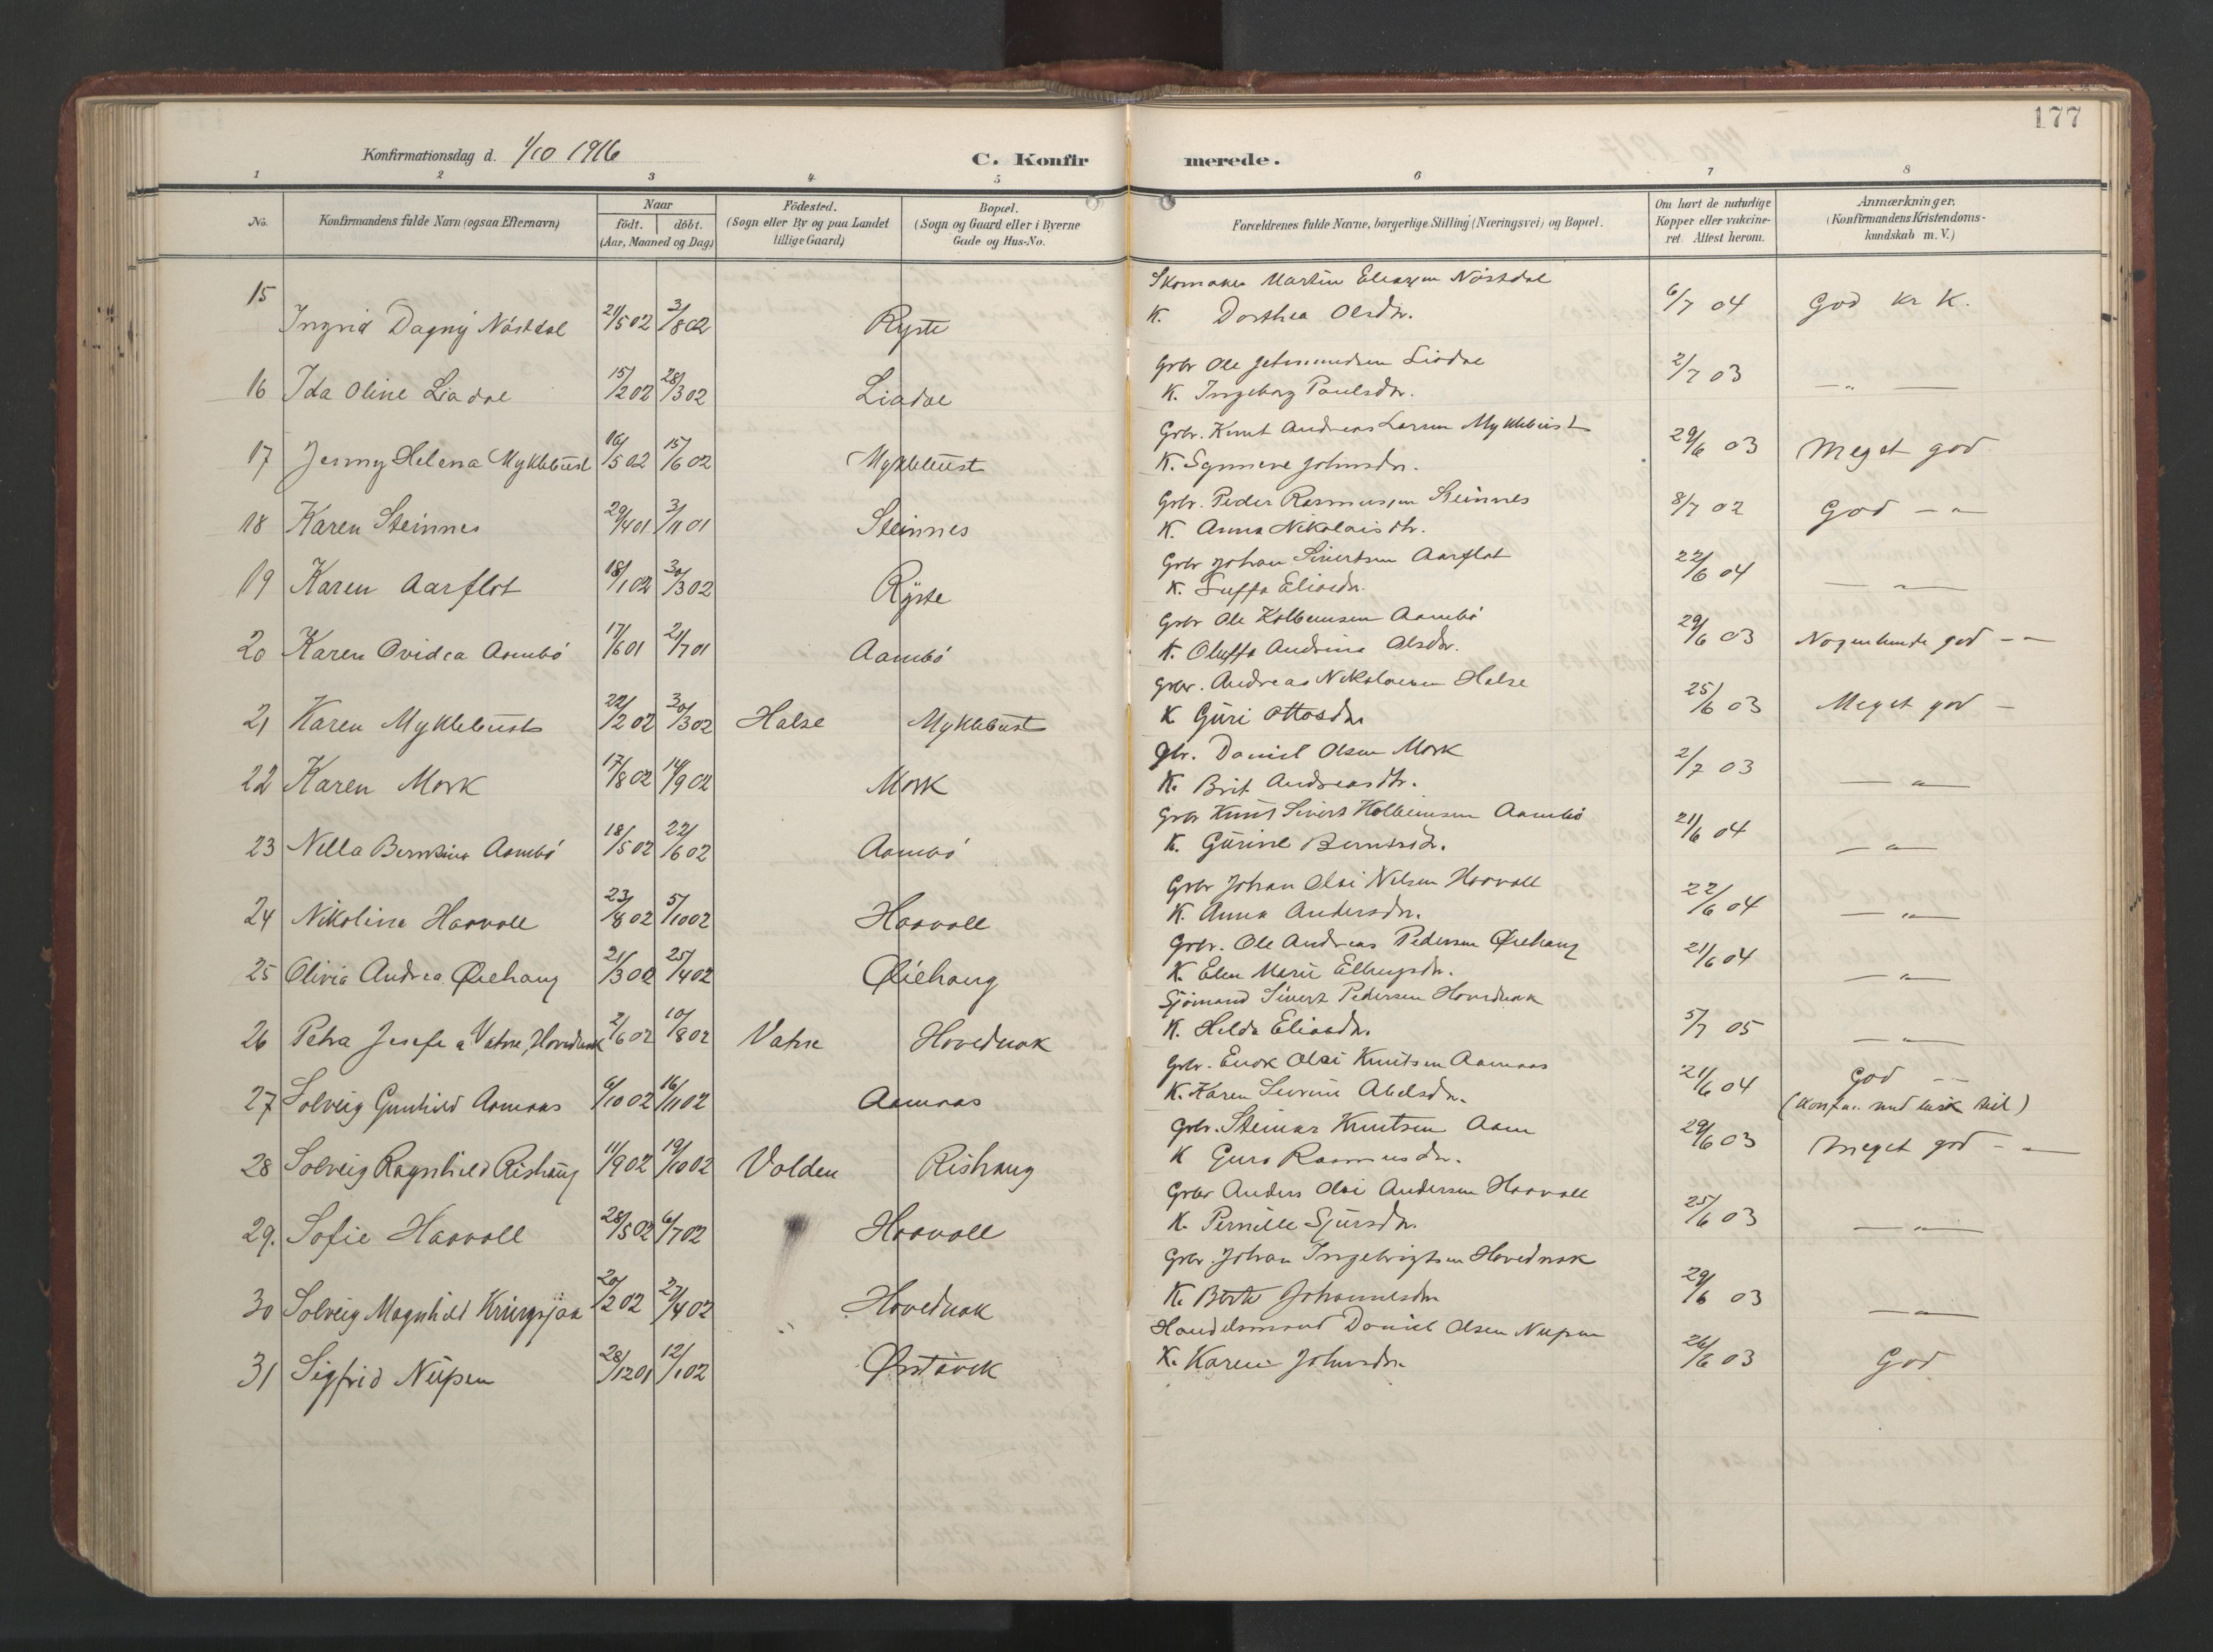 177
Konfirmationsdag d. 1/10 1916 C. Konfirmerede.
1 2 3 4 5 6 7 8
No. Konfirmandens fulde Navn (ogsaa Efternavn) Naar födt. döbt. (Aar, Maaned og Dag) Födested. (Sogn eller By og paa Landet tillige Gaard) Bopæl. (Sogn og Gaard eller i Byerne Gade og Hus-No. Forældrenes fulde Navne, borgerlige Stilling (Næringsvei) og Bopæl. Om havt de naturlige Kopper eller vakcineret. Attest herom. Anmærkninger. (Konfirmandens Kristendomskundskab m. V.)
Skomaker Martin Nöstdal
15 Ingrid Dagny Nöstdal 21/5 02 3/8 02 Ryste K. Dorthea Olsdr. 6/7 04 God kr K.
Grbr Ole Jetmundsen Liadal
16 Ida Oline Liadal 15/2 02 28/3 02 Liadal K. Ingeborg Paulsdr. 2/7 03 — " —
Grbr. Knut Andreas Larsen Myklebust
17 Jenny Helena Myklebust 16/5 02 15/6 02 Myklebust K. Synneve Johnsdr. 29/6 03 Meget god
Grbr. Peder Rasmussen Steinnes
18 Karen Steinnes 29/4 01 3/11 01 Steinnes K. Anna Nikolaisdtr. 8/7 02 God — "
Grbr Johan Sivertsen Aarflot
19 Karen Aarflot 18/1 02 30/3 02 Ryste K. Eliasdr. 22/6 04 — " —
Grbr Ole Kolbeinsen Aambö
20 Karen Ovidea Aambö 17/6 01 21/7 01 Aambö K. Oluffa Andrina Olsdr. 29/6 03 Nogenlunde god — —
Grbr. Andreas Nikolaisen Halse
21 Karen Myklebust 22/2 02 30/3 02 Halse Myklebust K Guri Ottosdr 25/6 03 Meget god —
Gbr. Daniel Olsen Mork
22 Karen Mork 17/8 02 14/9 02 Mork K. Brit Andreasdtr. 2/7 03 — " —
Grbr Knut Sivert Kolbeinsen Aambö
23 Nella Berntina Aambö 18/5 02 22/6 02 Aambö K. Gurine Berntsdr. 21/6 04 — " —
Grbr Johan Olai Nilsen Haavoll
24 Nikolina Haavoll 23/8 02 5/10 02 Haavoll K. Anna Andersdr. 22/6 04 — " —
Grbr. Ole Andreas Pedersen Öiehaug
25 Olivia Andrea Øiehaug 21/3 02 25/4 02 Øiehaug K. Elen Marie 21/6 04 — " —
Sjömand Sivert Pedersen Hovednak
26 Petra Josefa Vatne, Hovednak 2/6 02 10/8 02 Vatne Hovednak K. Hilda Eliasdr. 5/7 05 — " —
Grbr. Enok Olai Knutsen Aamaas
27 Solveig Gunhild Aamaas 6/10 02 16/11 02 Aamaas K. Karen Severine Abelsdr. 21/6 04 God — "
Grbr. Steinar Knutsen Aam
28 Solveig Ragnhild Rishaug 11/9 02 19/10 02 Volden Rishaug K Guro Rasmusdr. 29/6 03 Meget god — —
Grbr Anders Olai Andersen Haavoll
29. Sofie Haavoll 28/5 02 6/7 02 Haavoll K. Pernille Sjursdr. 25/6 03 — " —
Grbr. Johan Ingebrigtsen Hovednak
30 Solveig Magnhild Kringsjaa 20/2 02 27/4 02 Hovednak K. Berte Johannesdr 29/6 03 — " —
Handelsmand Daniel Olsen Nupen
31 Sigfrid Nupen 28/12 01 12/1 02 Ørstavik K. Karen Johnsdr. 26/6 03 God